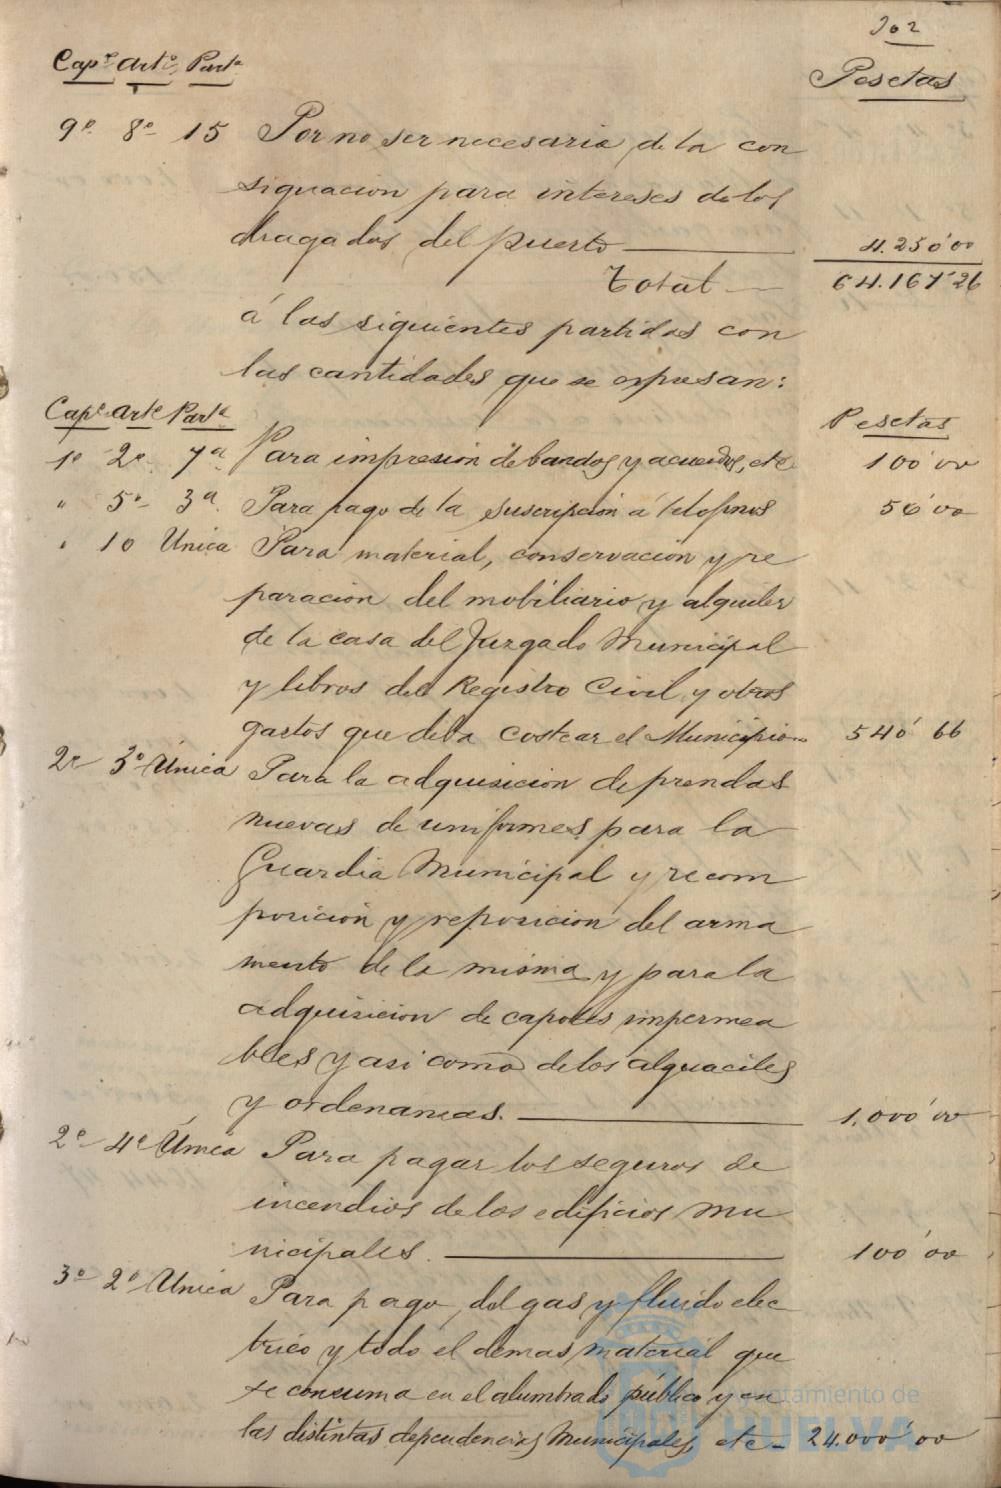 202
Capº Artº Parta
Pesetas
9º 8º 15 Por no ser necesaria de la con
signacion para intereses de los
dragados del puerto 4.250'00
Total 64.167'26
á las siguientes partidas con
las cantidades que se expresan:
Capº Artº Parta Pesetas
1º 2º 7ª Para impresion de bandos y acuerdos, etc 100'00
" 5º 3ª Para pago de la suscripción á telefonos 56'00
" 10 Unica Para material, conservacion y re
paracion del mobiliario y alquiler
de la casa del Juzgado Municipal
y libros del Registro Civil y otros
gastos que deba costear el Municipio 540'66
2º 3º Única Para la adquisicion de prendas
nuevas de uniformes para la
Guardia Municipal y recom
posición y reposicion del arma
mento de la misma y para la
adquisicion de capotes impermea
bles y asi como de los alguaciles
y ordenanzas. 1.000'00
2º 4º Única Para pagar los seguros de
incendios de los edificios mu
nicipales. 100'00
3º 2º Unica Para pago del gas y fluido elec
trico y todo el demas material que
se consuma en el alumbrado público y en
las distintas dependencias Municipales, etc 24.000'00
Ayuntamiento de
HUELVA